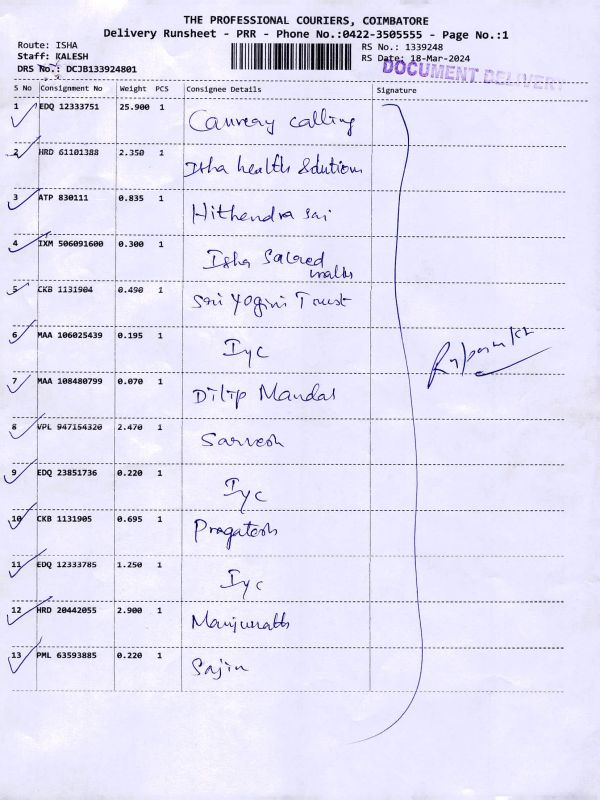 THE PROFESSIONAL COURIERS, COIMBATORE
Delivery Runsheet - PRR - Phone No.:0422-3505555 - Page No.:1
Route: ISHA
Staff: KALESH
DRS No.: DCJB133924801
RS No.: 1339248
RS Date: 18-Mar-2024
DOCUMENT DELIVERY
S No Consignment No Weight PCS Consignee Details Signature
1 EDQ 12333751 25.900 1 Cauvery calling
2 HRD 61101388 2.350 1 Isha health Solutions
3 ATP 830111 0.835 1 Hithendra sai
4 IXM 506091600 0.300 1 Isha Sacred
walks
5 CKB 1131904 0.490 1 Sri Yogini Trust
6 MAA 106025439 0.195 1 Iyc
7 MAA 108480799 0.070 1 Dilip Mandal
8 VPL 947154320 2.470 1 Sarvesh
9 EDQ 23851736 0.220 1 Iyc
10 CKB 1131905 0.695 1 Pragatesh
11 EDQ 12333785 1.250 1 Iyc
12 HRD 20442055 2.900 1 Manjunath
13 PML 63593885 0.220 1 Sajin